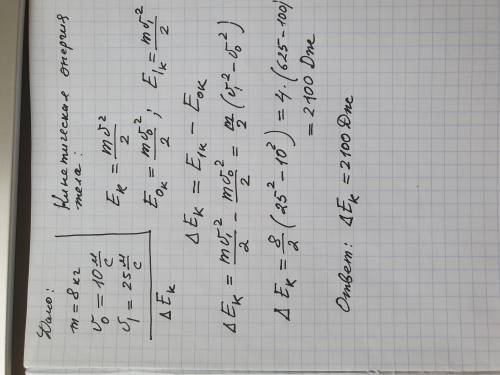 Дано:
m = 8 кг
v₀ = 10 м/с
v₁ = 25 м/с
ΔEₖ
Кинетическая энергия
тела:
Eₖ = mv²/2
E₀ₖ = mv₀²/2; E₁ₖ = mv₁²/2
ΔEₖ = E₁ₖ - E₀ₖ
ΔEₖ = mv₁²/2 - mv₀²/2 = m/2 (v₁² - v₀²)
ΔEₖ = 8/2 (25² - 10²) = 4 · (625 - 100) =
= 2100 Дж
Ответ: ΔEₖ = 2100 Дж